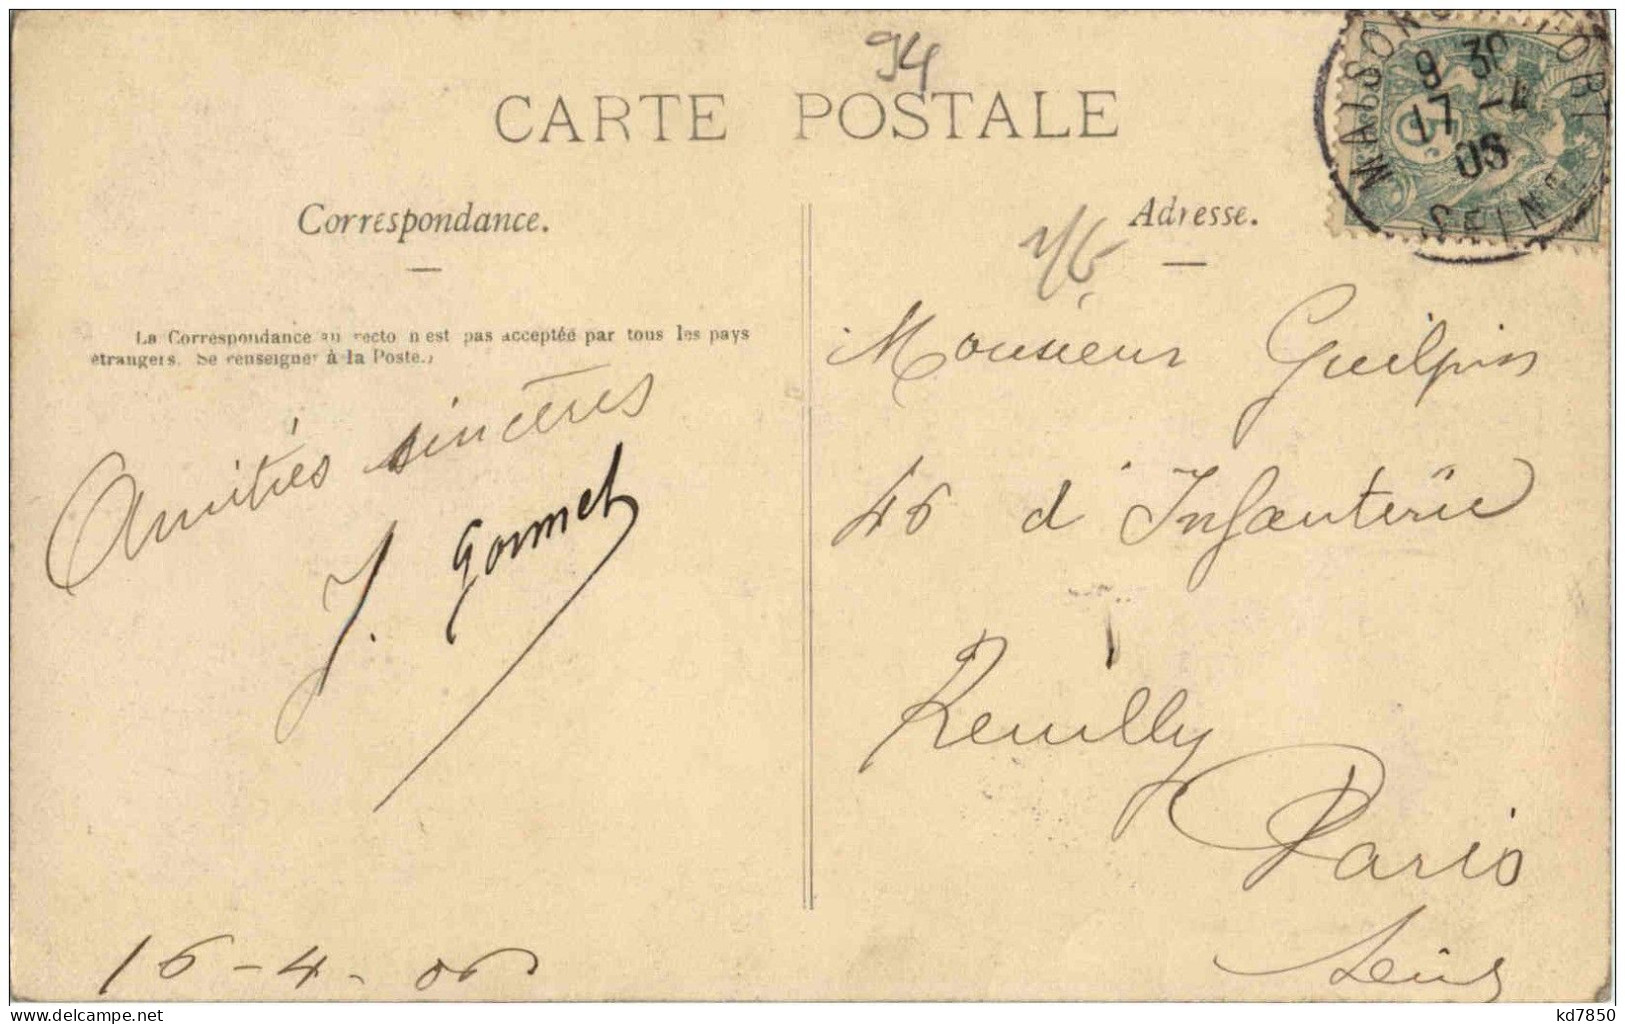 94
CARTE POSTALE
Correspondance.
La Correspondance au recto n'est pas acceptée par tous les pays
étrangers. Se renseigner à la Poste.)
Amitiés sincères
J. Gormet
16-4-06
Adresse.
MAISONS-ALFORT
9 30
17 -4
06
SEINE
5c
Monsieur Guilpin
46 d'Infanterie
Reuilly
Paris
Seine
kd7850